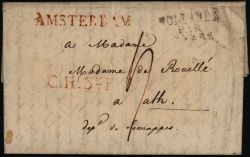 AMSTERDAM
HOLLANDE
PAR
a Madame
Madame de Rouillé
C.H.
a ath.
dep.t de Jemappes